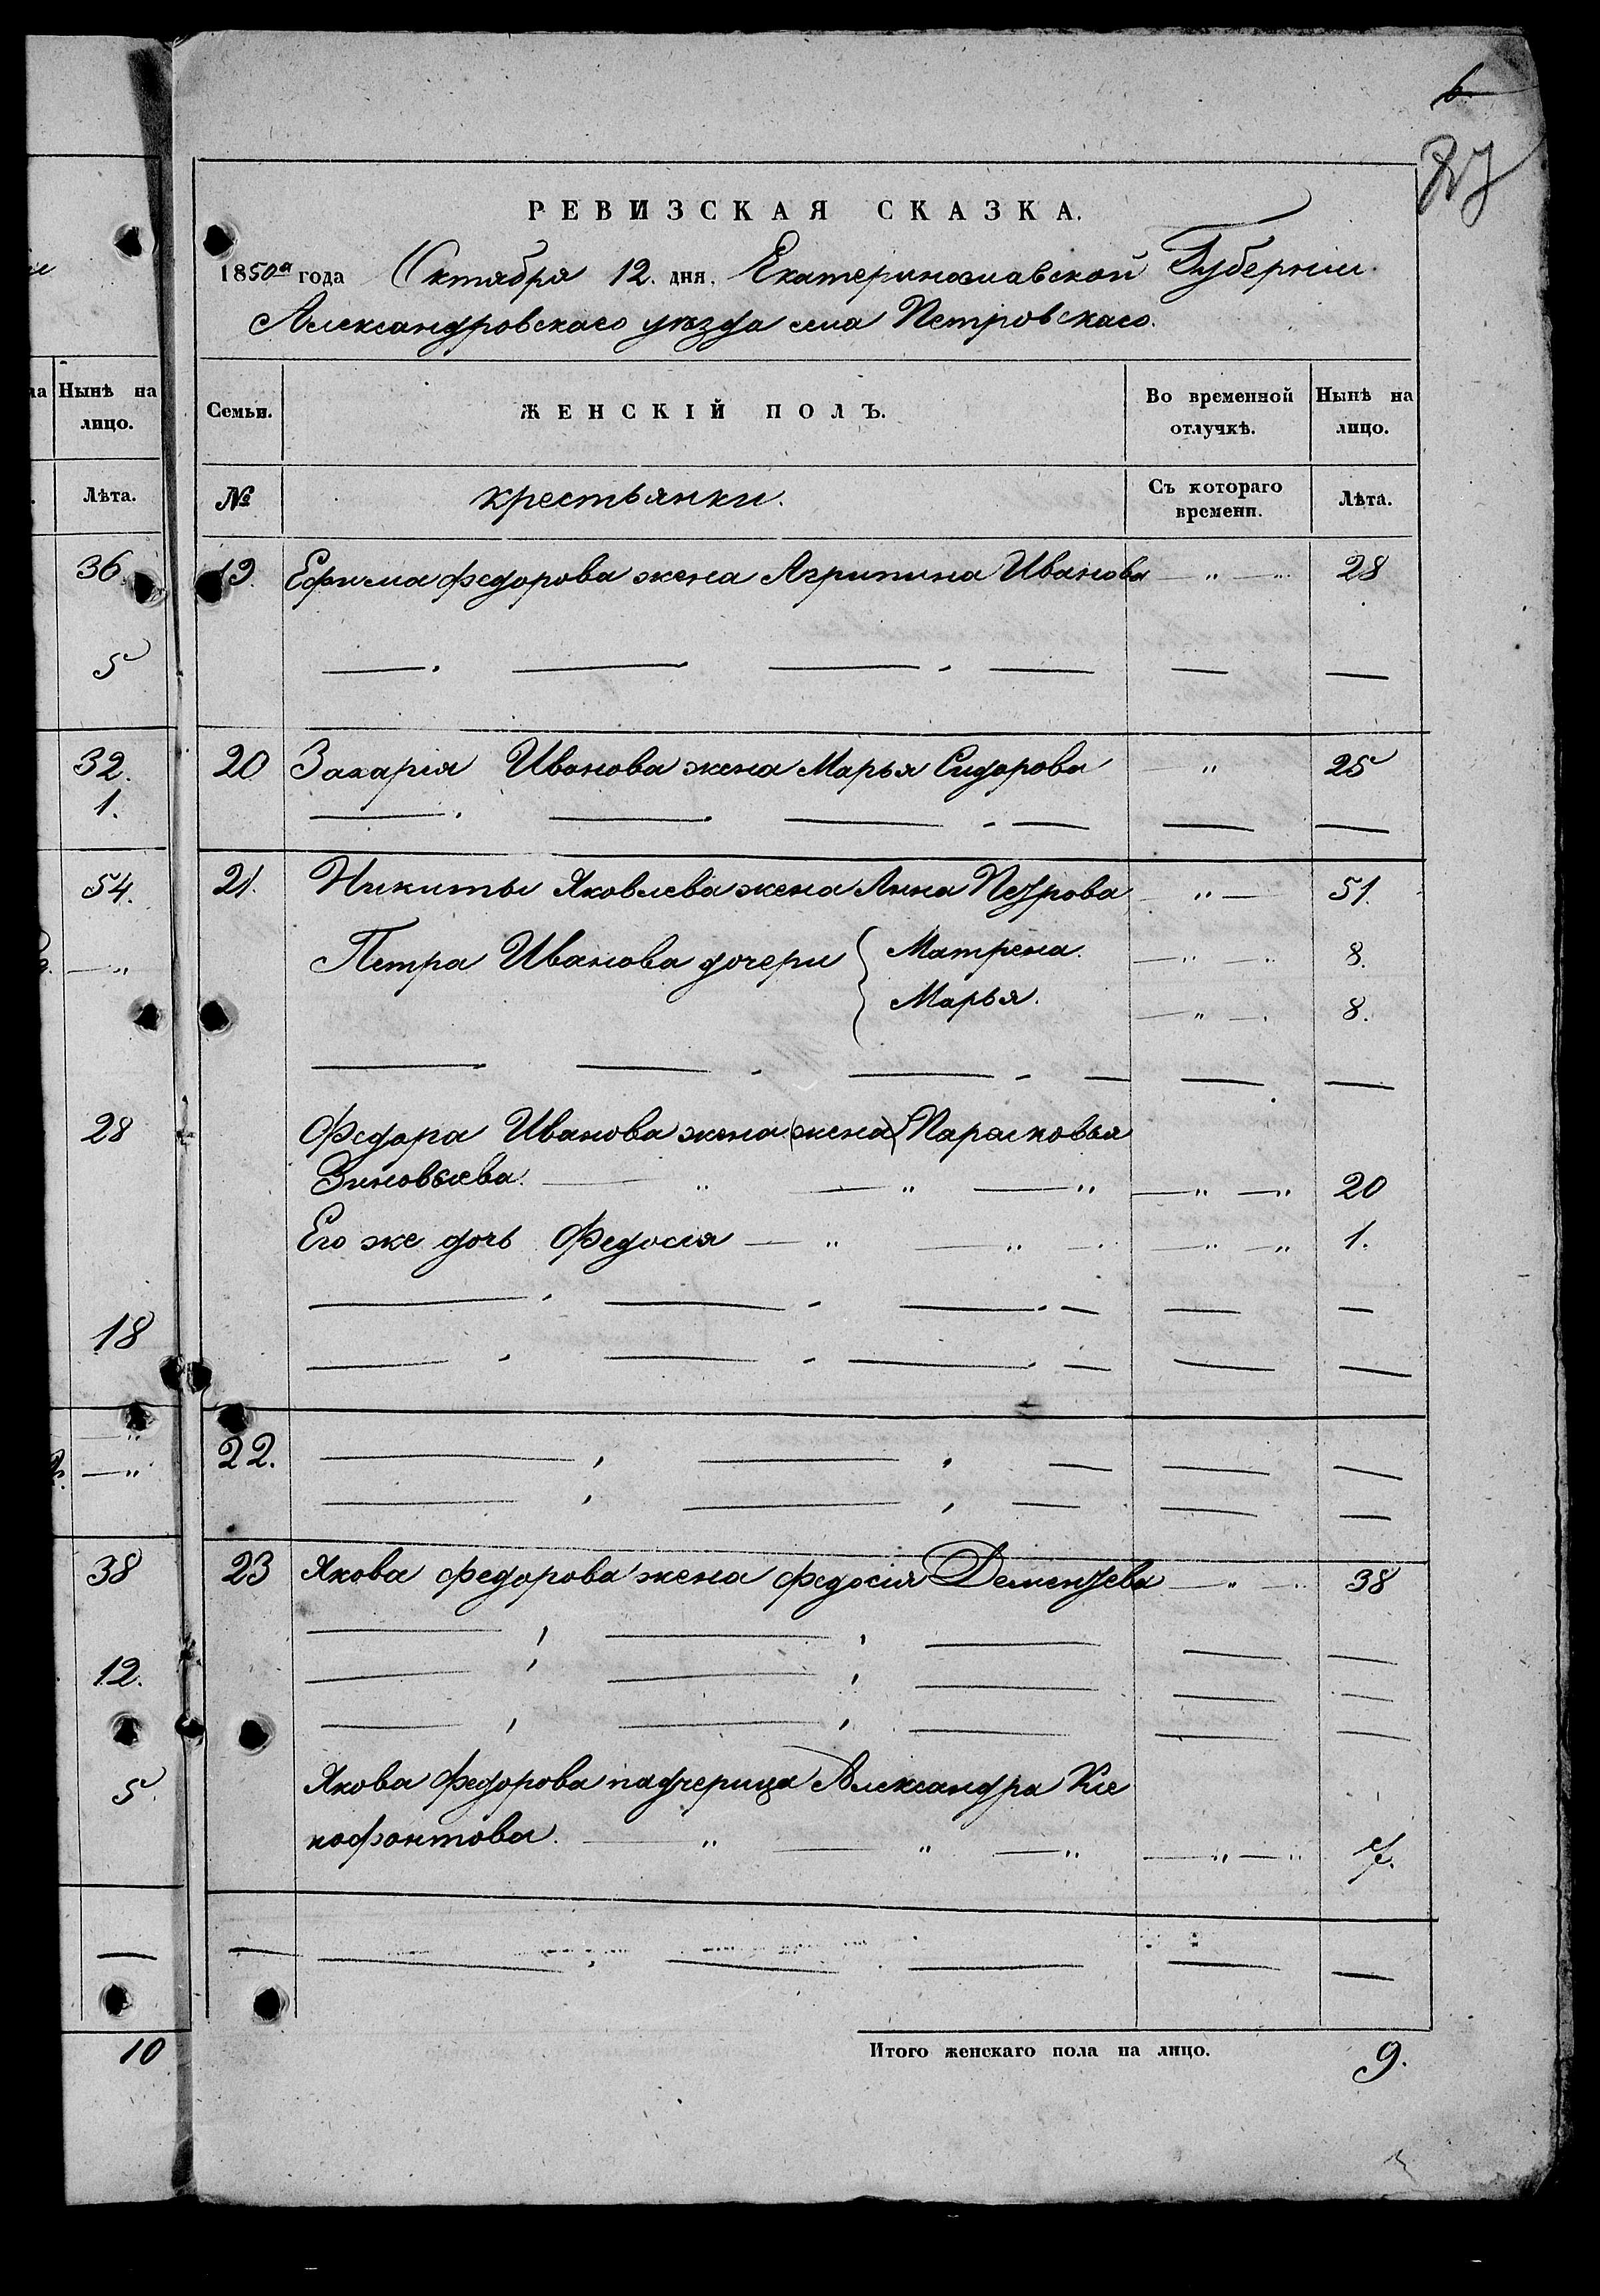 6.
РЕВИЗСКАЯ СКАЗКА.
1850го года Октября 12. дня. Екатеринославской Губернии.
Александровскаго уѣзда села Петровскаго.
на
Нынѣ на
лицо.
Лѣта.
36
5
32.
1.
54.
28
18
38
12.
5.
10
Семьи.
ЖЕНСКІЙ ПОЛЪ.
Во временной
отлучкѣ.
Нынѣ на
лицо.
№
крестьянки.
Съ котораго
времени.
Лѣта.
19. Ефима Федорова жена Агрипина Иванова — " — 28
20 Захарія Иванова жена Марья Сидорова — " 25
21. Никиты Яковлева жена Анна Петрова — " — 51.
Петра Иванова дочери { Матрена. — " — 8.
Марья. — " — 8.
Федора Иванова жена (жена) Парасковья
Зиновьева. — " — " — " — " — " 20
Его же дочь Федосія — " — " — " — " 1.
22.
23 Якова Федорова жена Федосія Дементьева — " — 38
Якова Федорова падчерица Александра Ксе
нофонтова. — " — " — " — " — " 7.
Итого женскаго пола на лицо. 9.